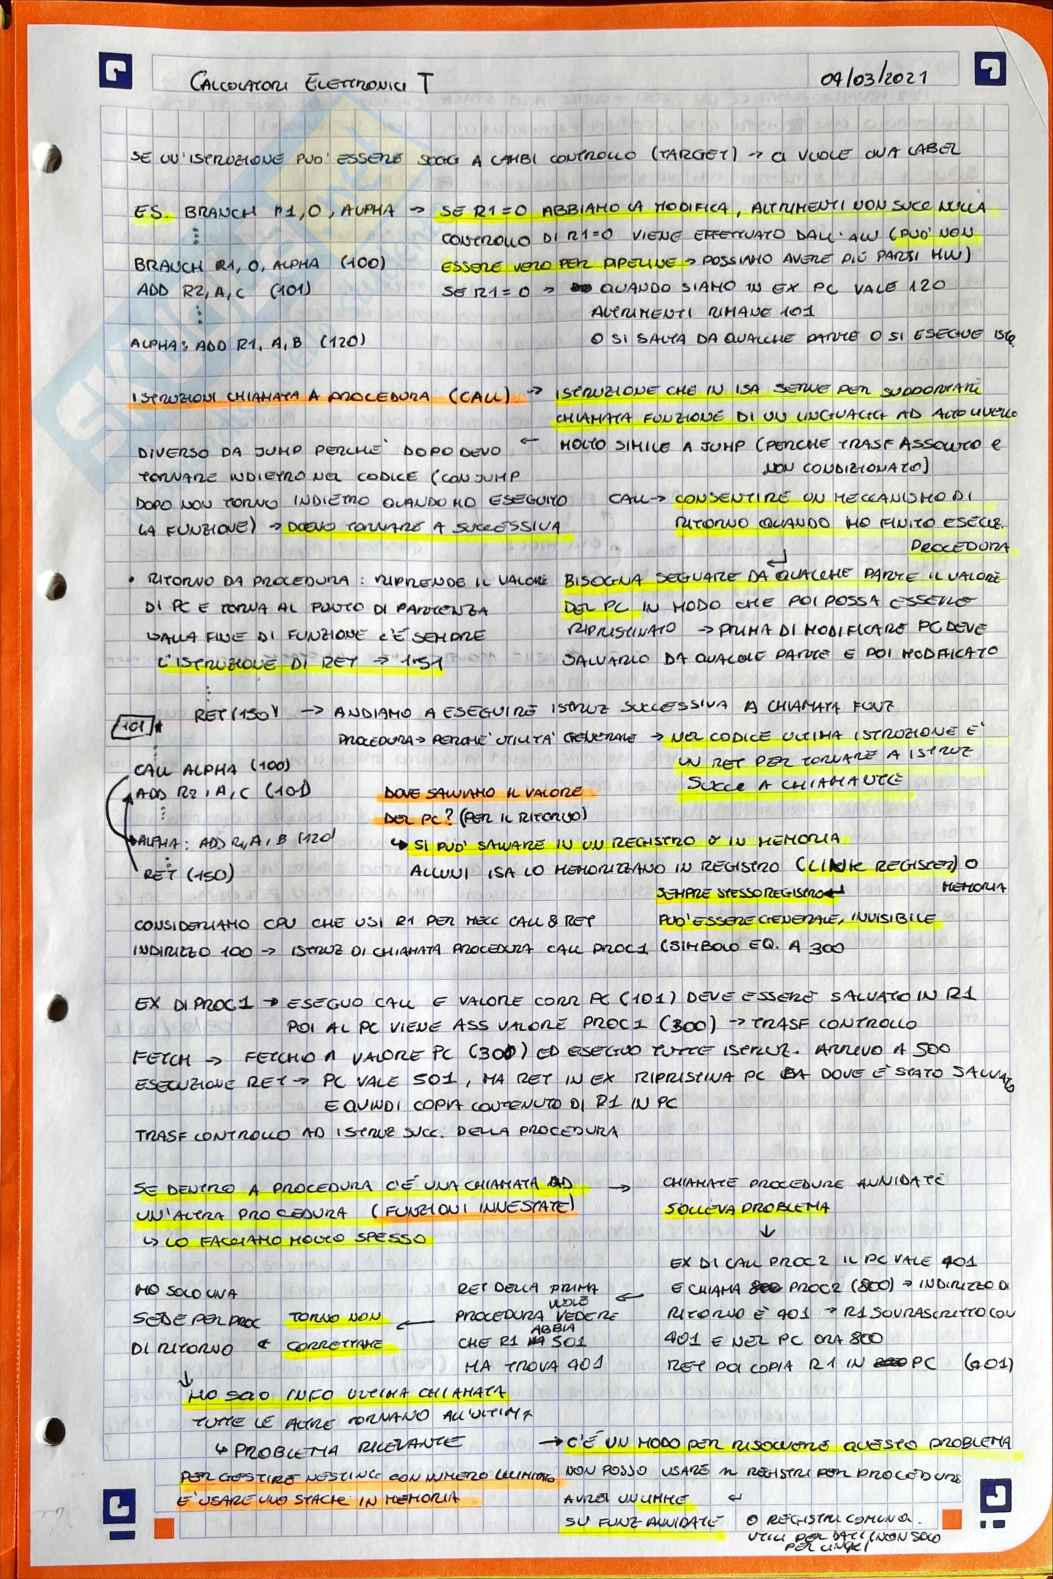 CALCOLATORI ELETTRONICI T
04/03/2021
SE UN'ISTRUZIONE PUO' ESSERE A CAMBI CONTROLLO (TARGET) → CI VUOLE UNA LABEL
ES. BRANCH R1,0, ALPHA → SE R1=0 ABBIAMO LA MODIFICA, ALTRIMENTI NON SUCC NULLA
CONTROLLO DI R1=0 VIENE EFFETTUATO DALL'ALU (PUO' NON
BRANCH R1, 0, ALPHA (100)
ESSERE VERO PER PIPELINE → POSSIAMO AVERE PIÙ PARTI HW)
ADD R2, A, C (101)
SE R1=0 → QUANDO SIAMO IN EX PC VALE 120
ALTRIMENTI RIMANE 101
ALPHA: ADD R1, A, B (120)
O SI SALTA DA QUALCHE PARTE O SI ESEGUE
ISTRUZIONI CHIAMATA A PROCEDURA (CALL) → ISTRUZIONE CHE IN ISA SERVE PER SUPPORTARE
CHIAMATA FUNZIONE DI UN LINGUAGGI AD ALTO LIVELLO
← MOLTO SIMILE A JUMP (PERCHE TRASF ASSOLUTO E
NON CONDIZIONATO)
DIVERSO DA JUMP PERCHE' DOPO DEVO
TORNARE INDIETRO NEL CODICE (CON JUMP
DOPO NON TORNO INDIETRO QUANDO HO ESEGUITO
LA FUNZIONE) → DEVO TORNARE A SUCCESSIVA
CALL → CONSENTIRE UN MECCANISMO DI
RITORNO QUANDO HO FINITO ESECUZ.
PROCEDURA
• RITORNO DA PROCEDURA: RIPRENDE IL VALORE
DI PC E TORNA AL PUNTO DI PARTENZA
↳ ALLA FINE DI FUNZIONE C'È SEMPRE
L'ISTRUZIONE DI RET → 151
BISOGNA SEGUARE DA QUALCHE PARTE IL VALORE
DEL PC IN MODO CHE POI POSSA ESSERE
RIPRISTINATO → PRIMA DI MODIFICARE PC DEVE
SALVARLO DA QUALCHE PARTE E POI MODIFICATO
RET (150) → ANDIAMO A ESEGUIRE ISTRUZ SUCCESSIVA A CHIAMATA FUNZ
101
PROCEDURA → PERCHE' UTILITA' GENERALE → NEL CODICE ULTIMA ISTRUZIONE E'
UN RET PER TORNARE A ISTRUZ
SUCCE A CHIAMANTE
CALL ALPHA (100)
ADD R2, A, C (101)
ALPHA: ADD R1, A, B (120)
RET (150)
DOVE SALVIAMO IL VALORE
DEL PC? (PER IL RITORNO)
↳ SI PUO' SALVARE IN UN REGISTRO O IN MEMORIA
ALCUNI ISA LO MEMORIZZANO IN REGISTRO (LINK REGISTER) O
MEMORIA
SEMPRE STESSO REGISTRO ↵
PUO' ESSERE GENERALE, INVISIBILE
CONSIDERIAMO CPU CHE USI R1 PER MECC CALL & RET
INDIRIZZO 100 → ISTRUZ DI CHIAMATA PROCEDURA CALL PROC1 (SIMBOLO EQ. A 300
EX DI PROC1 → ESEGUO CALL E VALORE CORR PC (101) DEVE ESSERE SALVATO IN R1
POI AL PC VIENE ASS VALORE PROC1 (300) → TRASF CONTROLLO
FETCH → FETCHO A VALORE PC (300) ED ESEGUO TUTTE ISTRUZ. ARRIVO A 500
ESECUZIONE RET → PC VALE 501, MA RET IN EX RIPRISTINA PC DA DOVE È STATO SALVATO
E QUINDI COPIA CONTENUTO DI R1 IN PC
TRASF CONTROLLO AD ISTRUZ SUCC. DELLA PROCEDURA
SE DENTRO A PROCEDURA C'È UNA CHIAMATA AD
UN'ALTRA PROCEDURA (FUNZIONI INNESTATE)
↳ LO FACCIAMO MOLTO SPESSO
→ CHIAMATE PROCEDURE ANNIDATE
SOLLEVA PROBLEMA
↓
EX DI CALL PROC2 IL PC VALE 401
E CHIAMA PROC2 (800) → INDIRIZZO DI
RITORNO È 401 → R1 SOVRASCRITTO CON
401 E NEL PC ORA 800
RET POI COPIA R1 IN PC (401)
RET DELLA PRIMA ←
PROCEDURA VUOLE VEDERE
CHE R1 ABBIA 501
MA TROVA 401
HO SOLO UNA
SEDE PER PROC
DI RITORNO
TORNO NON
CORRETTAME
↓
HO SOLO INFO ULTIMA CHIAMATA
TUTTE LE ALTRE TORNANO ALL'ULTIMA
↳ PROBLEMA RILEVANTE
→ C'È UN MODO PER RISOLVERE QUESTO PROBLEMA
PER GESTIRE NESTING CON NUMERO ILLIMITATO
E' USARE UNO STACK IN MEMORIA
NON POSSO USARE N REGISTRI PER PROCEDURE
AVREI UN LIMITE
SU FUNZ ANNIDATE
O REGISTRI COMUNQ.
UTILI PER DATI (NON SOLO
PER LINK)